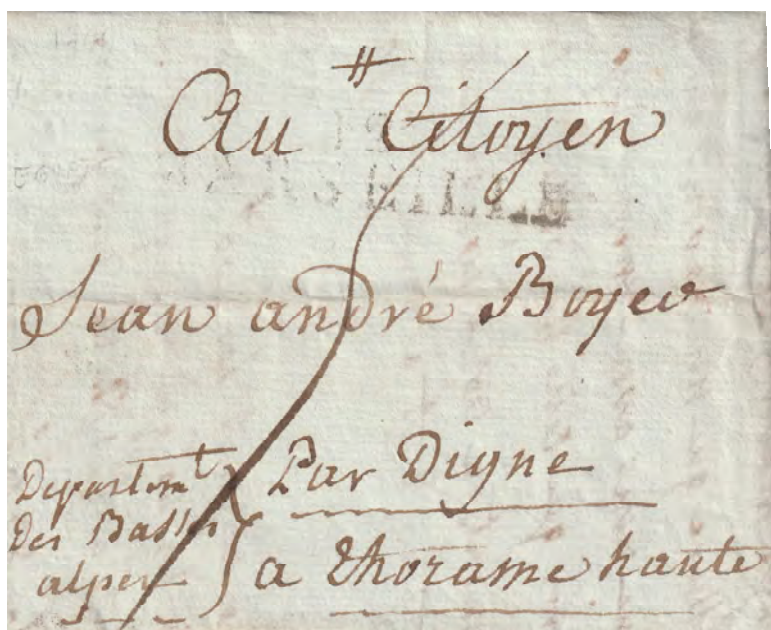 Au Citoyen
Jean andré Boyer
Departemt
des Basses
alpes
Par Digne
a thorame haute